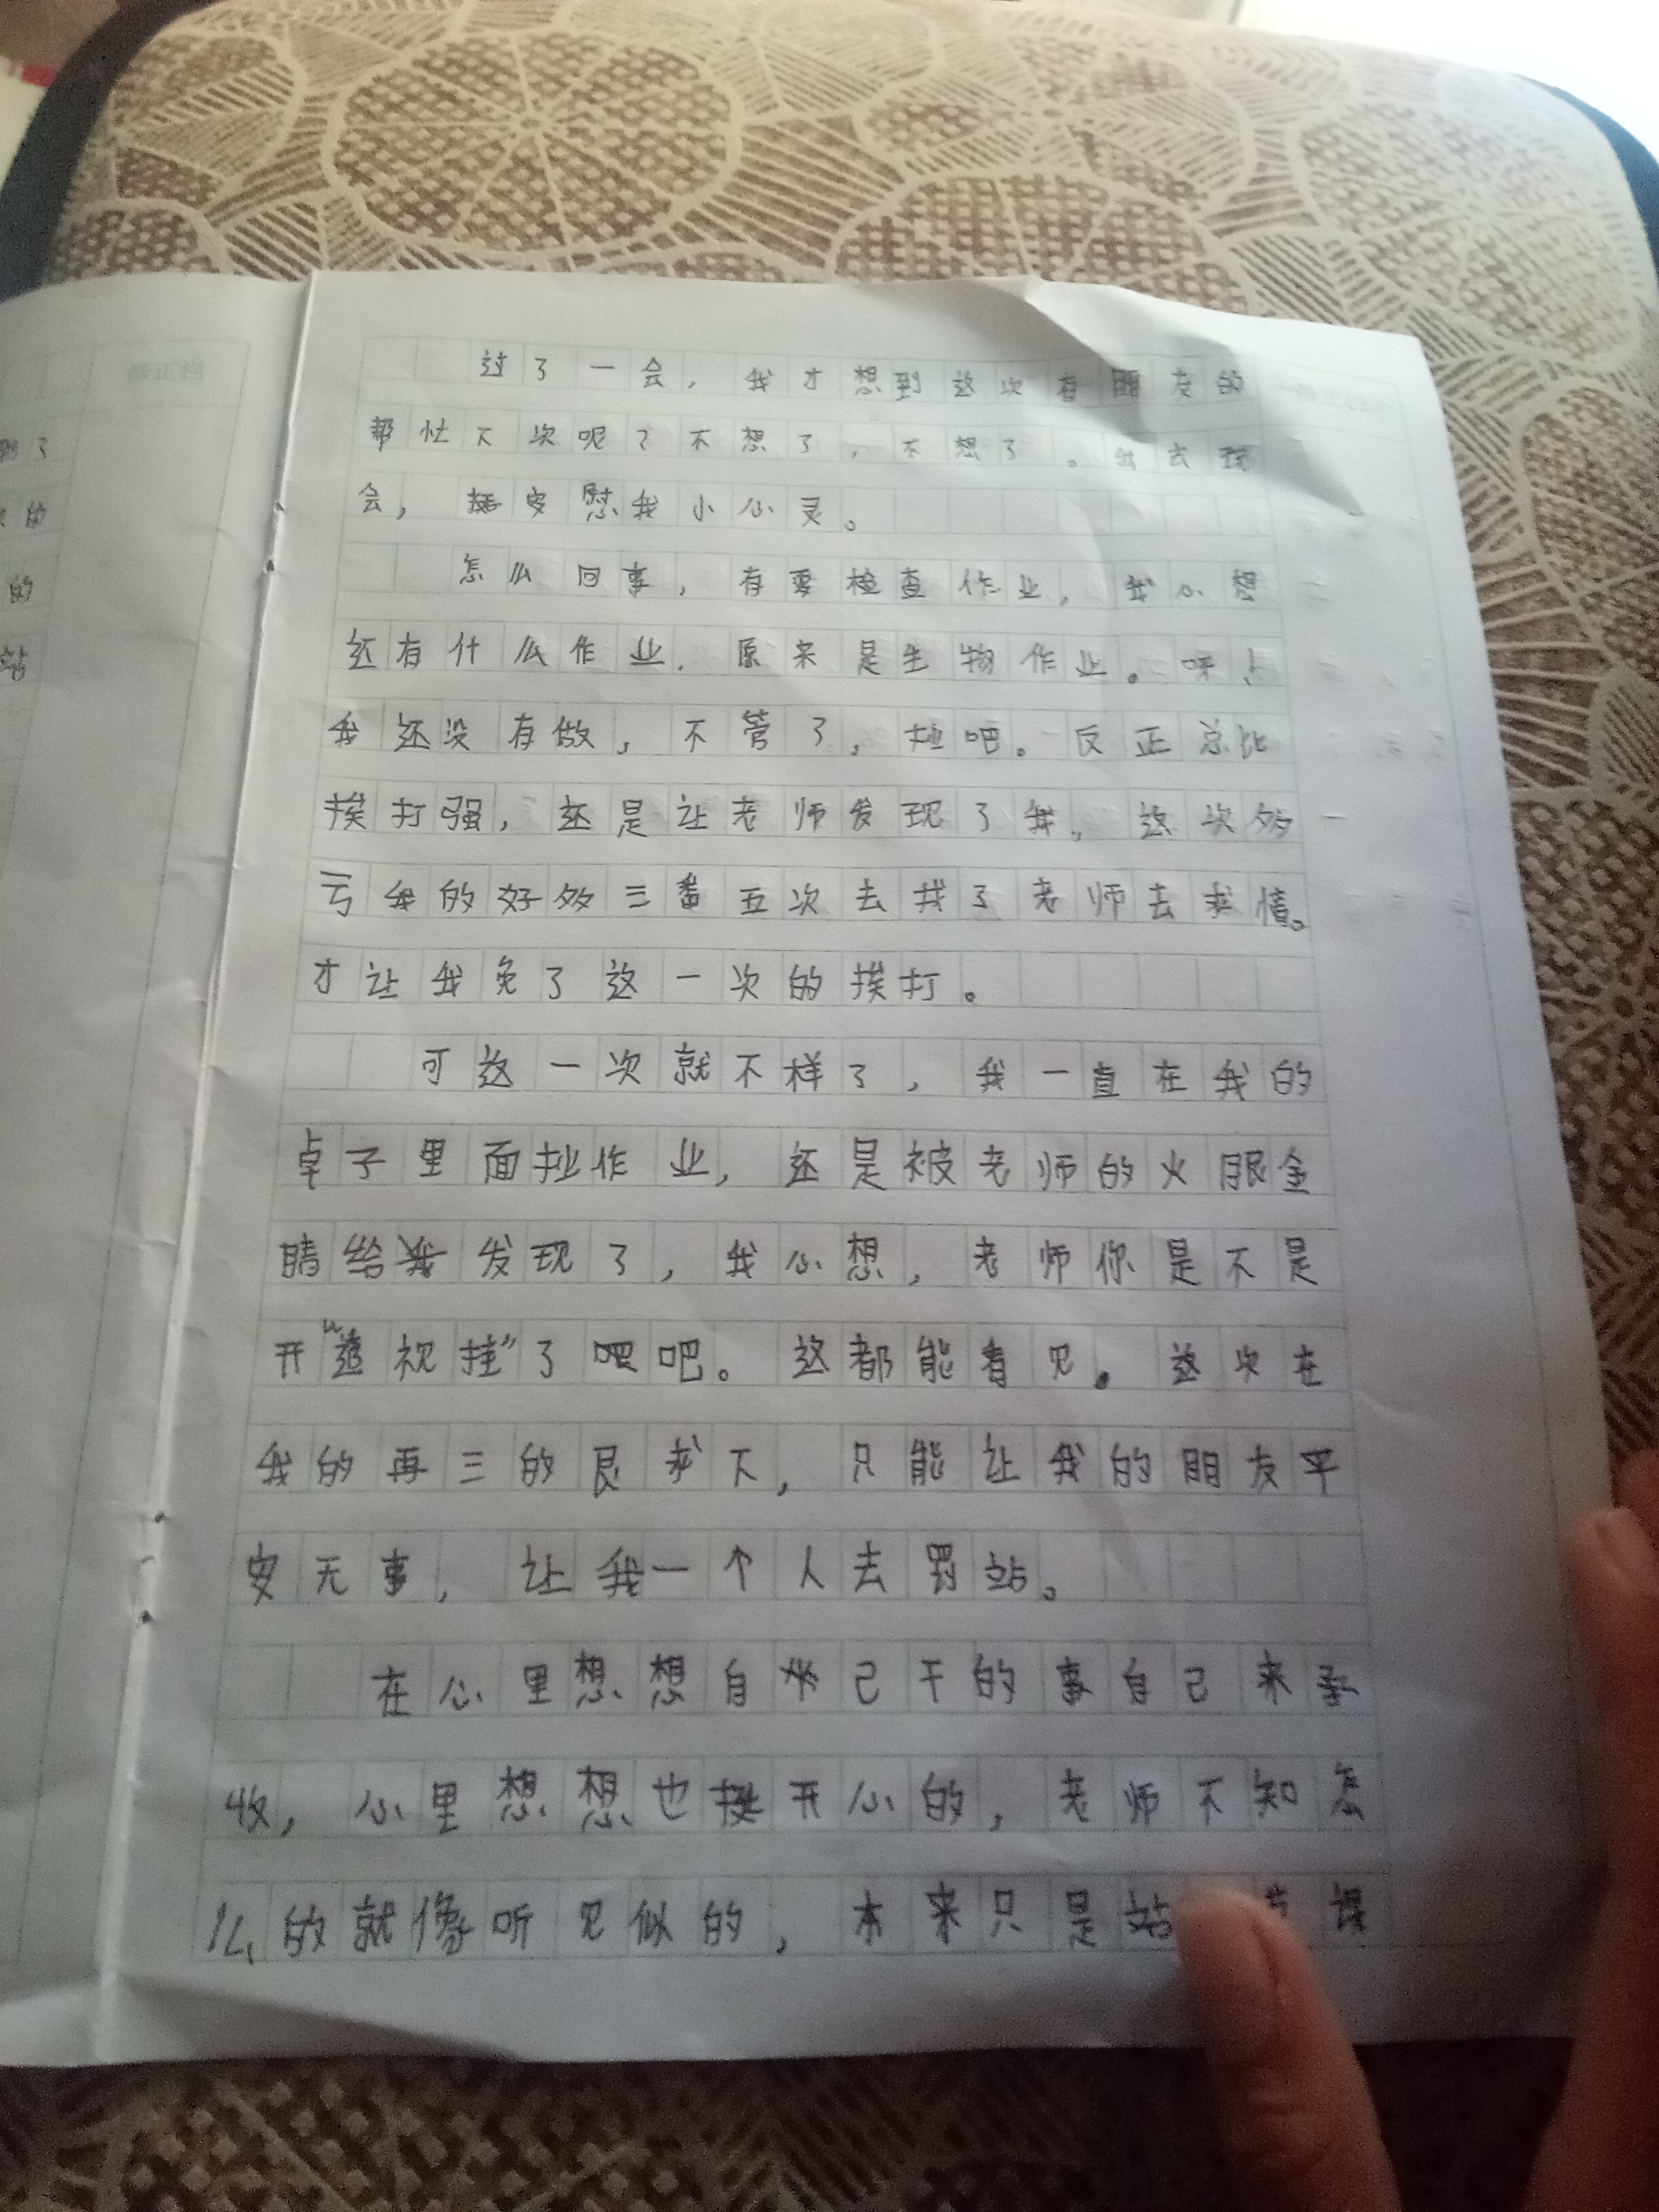 过了一会,我才想到这次有朋友的
帮忙下次呢?不想了,不想了。出去玩
会,安慰我小心灵。
怎么回事,有要检查作业,我心想
还有什么作业.原来是生物作业。呀!
我还没有做,不管了,抄吧。反正总比
挨打强,还是让老师发现了我,这次多
亏我的好多三番五次去找了老师去求情。
才让我免了这一次的挨打。
可这一次就不样了,我一直在我的
卓子里面抄作业,还是被老师的火眼金
睛给发现了,我心想,老师你是不是
开“透视挂”了吧。这都能看见。这次在
我的再三的恳求下,只能让我的朋友平
安无事,让我一个人去罚站。
在心里想想自己干的事自己来承
收,心里想想也挺开心的,老师不知怎
么的就像听见似的,本来只是站 课
了
的
的
站